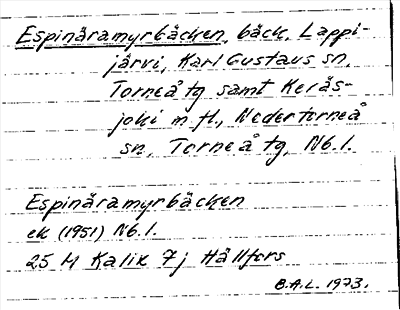 Espinäramyrbäcken, bäck, Lappi-
järvi, Karl Gustavs sn,
Torneå tg samt Keräs-
joki m.fl., Nedertorneå
sn, Torneå tg, Nb. l.
Espinäramyrbäcken
ek (1951) Nb. l.
25 M Kalix 7j Hällfors
B.A.L. 1973.